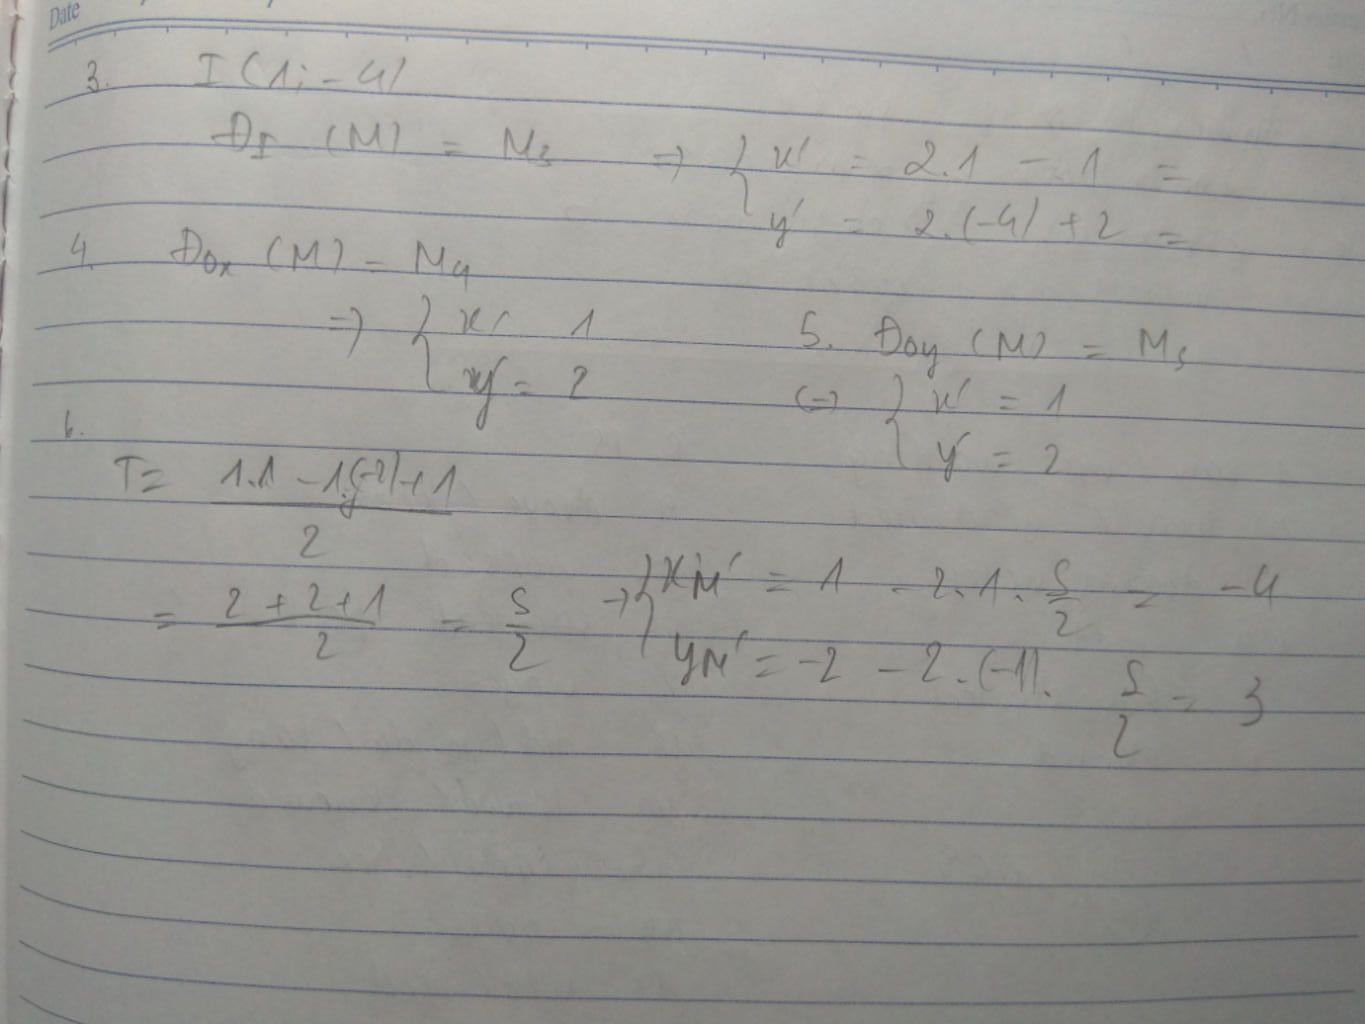 Date
3. I (1; -4)
Đ_I (M) = M_3 => { x' = 2.1 - 1 =
y' = 2.(-4) + 2 =
4. Đ_ox (M) = M_4
=> { x' 1
y' = 2
5. Đ_oy (M) = M_5
<=> { x' = 1
y' = 2
6.
T = \frac{1.1 - 1.(-2) + 1}{2}
= \frac{2 + 2 + 1}{2} = \frac{5}{2} -> { x_M' = 1 - 2.1.\frac{5}{2} = -4
y_M' = -2 - 2.(-1).\frac{5}{2} = 3